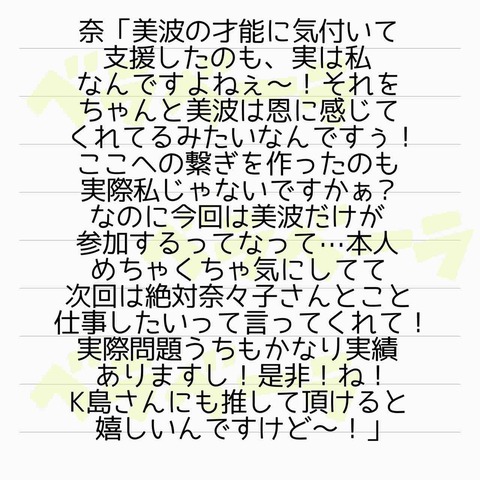 奈「美波の才能に気付いて
支援したのも、実は私
なんですよねぇ〜！それを
ちゃんと美波は恩に感じて
くれてるみたいなんですぅ！
ここへの繋ぎを作ったのも
実際私じゃないですかぁ？
なのに今回は美波だけが
参加するってなって…本人
めちゃくちゃ気にしてて
次回は絶対奈々子さんとこと
仕事したいって言ってくれて！
実際問題うちもかなり実績
ありますし！是非！ね！
K島さんにも推して頂けると
嬉しいんですけど〜！」